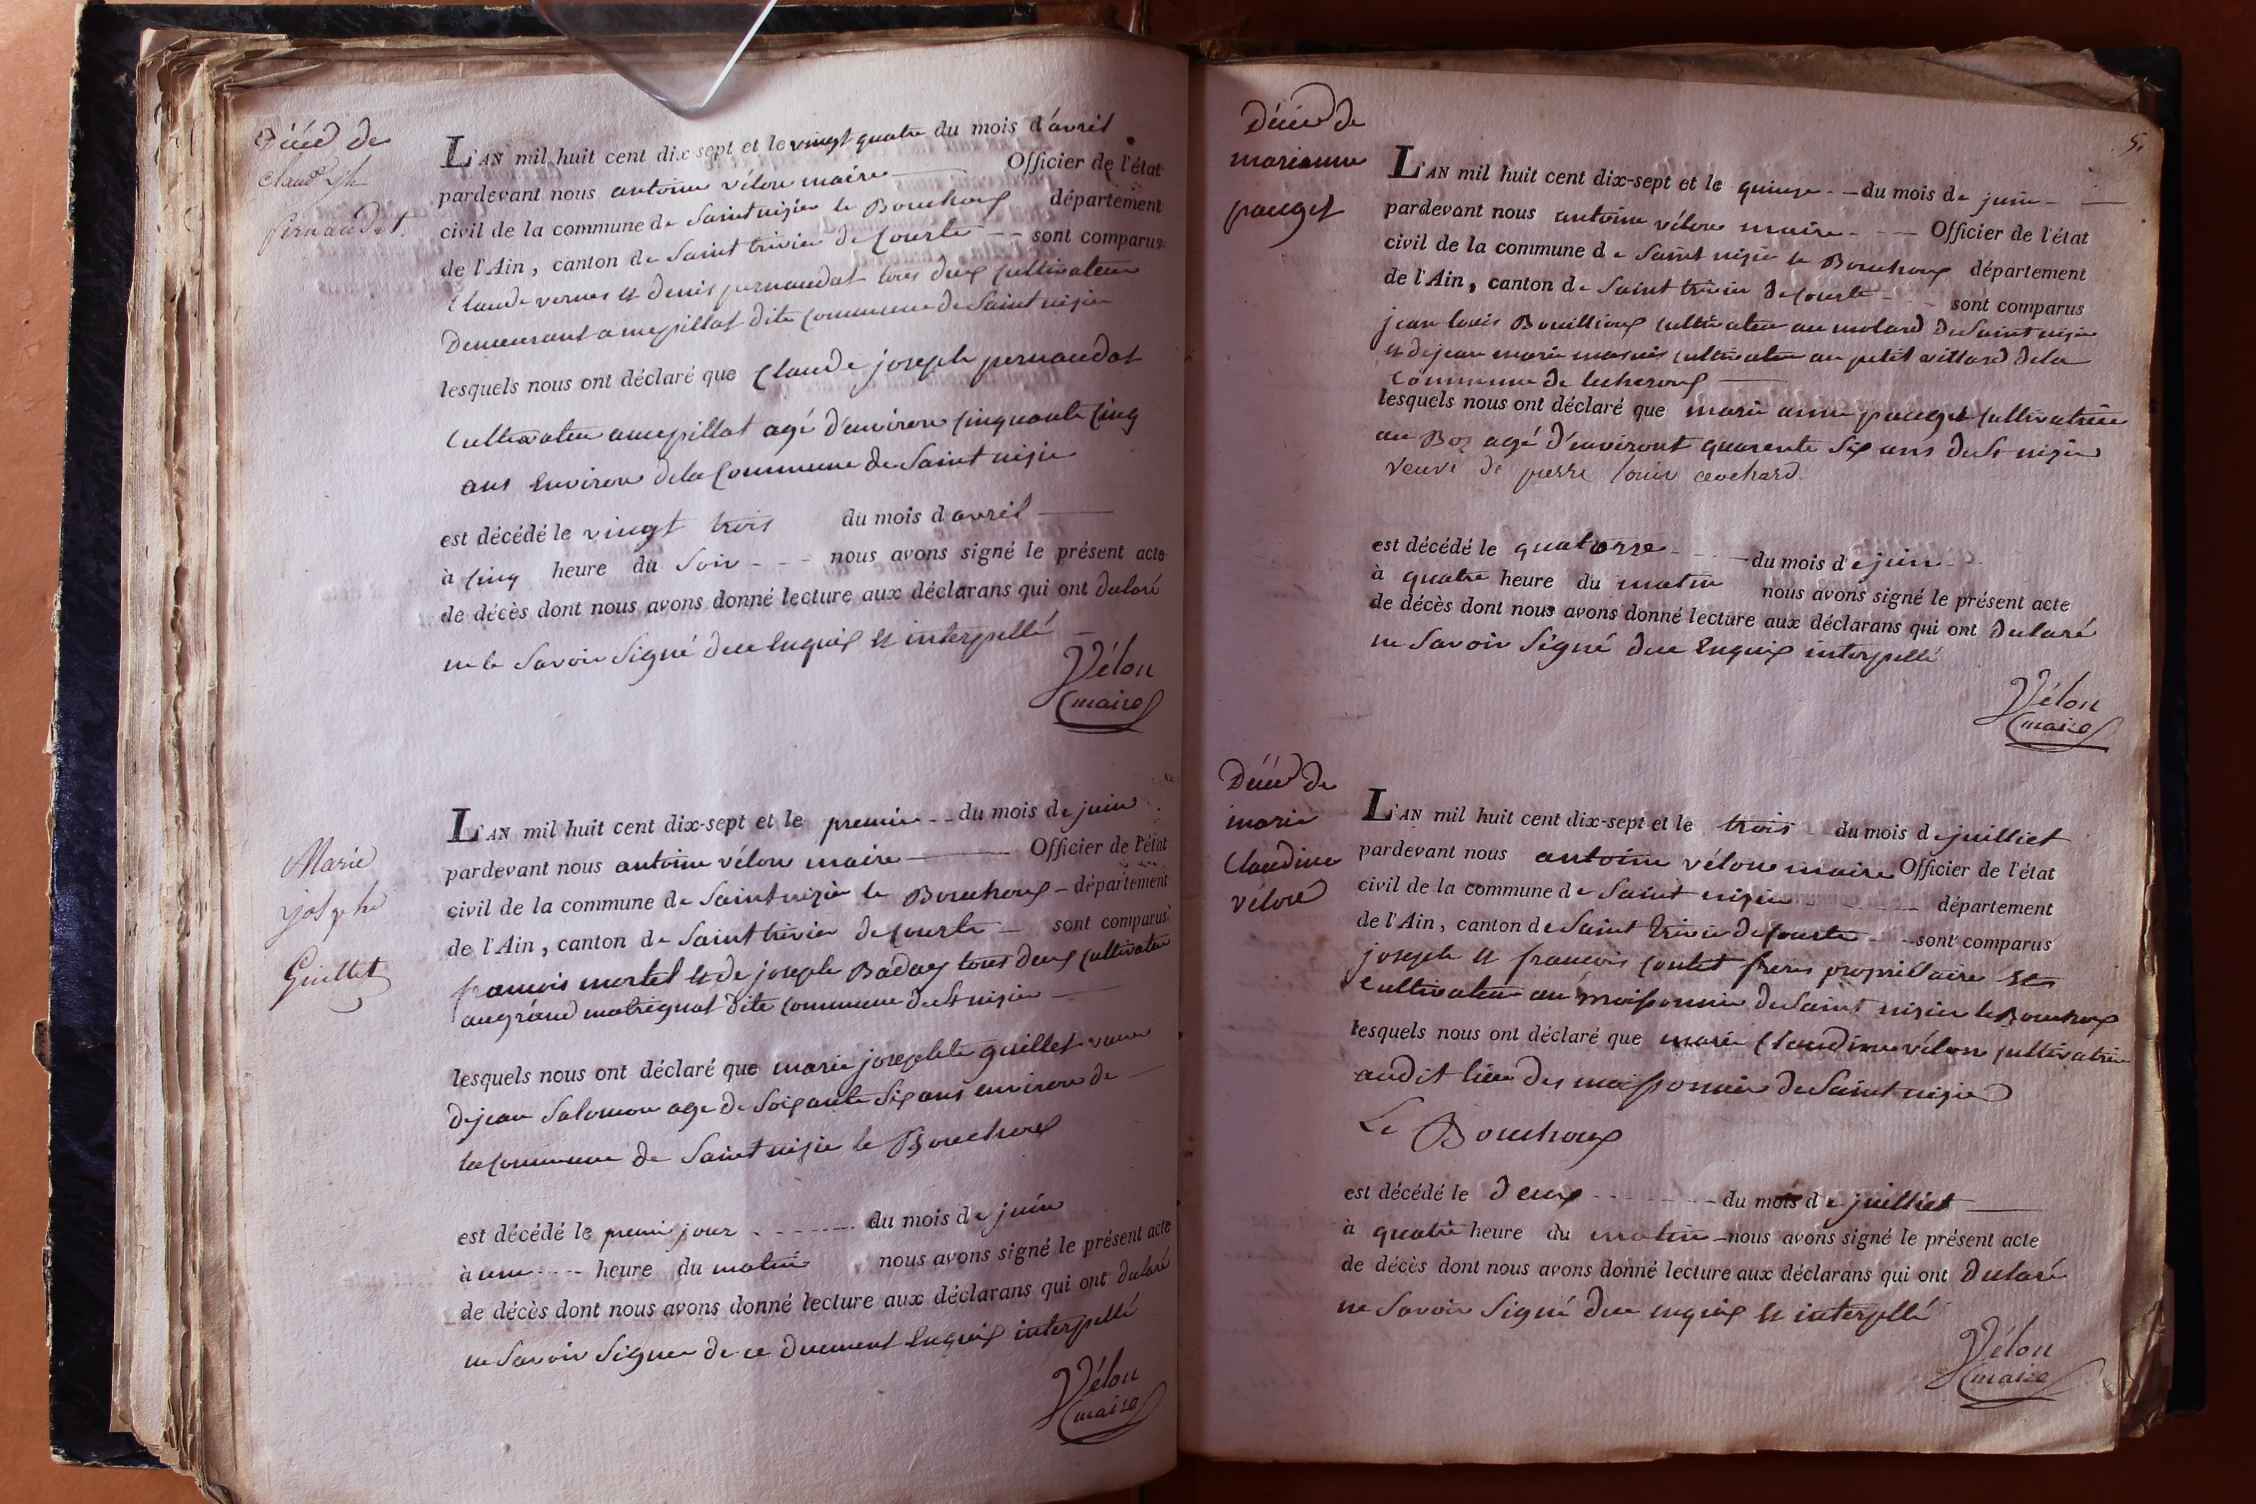 Décéd de
Claude Jh
pernaudat.
L'AN mil huit cent dix-sept et le vingt quatre du mois d'avril
pardevant nous antoine vélon maire Officier de l'état
civil de la commune de Saint nizier le Bouchoux département
de l'Ain, canton de Saint trivier de Courte sont comparus
Claude vernus et denis pernaudat tous deux cultivateur
Demeurant a mepillat dite commune de Saint nizier
lesquels nous ont déclaré que Claude joseph pernaudat
Cultivateur a mepillat agé d'environ cinquante cinq
ans Environ de la Commune de Saint nizier
est décédé le vingt trois du mois d'avril
à cinq heure du Soir nous avons signé le présent acte
de décès dont nous avons donné lecture aux déclarans qui ont declaré
ne le Savoir Signé de ce Enquis et interpellé
Vélon
maire
Marie
josephe
Guillet
L'AN mil huit cent dix-sept et le premier du mois de juin
pardevant nous antoine vélon maire Officier de l'état
civil de la commune de Saint nizier le Bouchoux département
de l'Ain, canton de Saint trivier de Courte sont comparus
francois mortel et de joseph Baday tous deux cultivateur
au grand matrignat dite commune de St nizier
lesquels nous ont déclaré que marie josephte guillet veuve
de jean Salomon age de Soixante Six ans environ de
la Commune de Saint nizier le Bouchoux
est décédé le premier jour du mois de juin
à une heure du matin nous avons signé le présent acte
de décès dont nous avons donné lecture aux déclarans qui ont declaré
ne Savoir Signer de ce duement Enquis interpellé
Vélon
maire
5.
Décéd de
marianne
pauget
L'AN mil huit cent dix-sept et le quinze du mois de juin
pardevant nous antoine vélon maire Officier de l'état
civil de la commune de Saint nizier le Bouchoux département
de l'Ain, canton de Saint trivier de Courte sont comparus
jean louis Bouillioux cultivateur au molard de Saint nizier
et de jean marie cultivateur au petit villard de la
Commune de lecheroux
lesquels nous ont déclaré que marie anne pauget Cultivatrice
au Boz agé d'environt quarente Six ans de St nizier
veuve de pierre louis
est décédé le quatorze du mois de juin
à quatre heure du matin nous avons signé le présent acte
de décès dont nous avons donné lecture aux déclarans qui ont declaré
ne Savoir Signé de ce Enquis interpellé
Vélon
maire
Décéd de
marie
Claudine
véloné
L'AN mil huit cent dix-sept et le trois du mois de juilliet
pardevant nous antoine vélon maire Officier de l'état
civil de la commune de Saint nizier département
de l'Ain, canton de Saint trivier de Courte sont comparus
joseph et francois Contet freres proprillaire et
Cultivateur au moissonnier de Saint nizier le Bouchoux
lesquels nous ont déclaré que marie Claudine vélon cultivatrice
audit lieu des moissonnier de Saint nizier
Le Bouchoux
est décédé le deux du mois de juilliet
à quatre heure du matin nous avons signé le présent acte
de décès dont nous avons donné lecture aux déclarans qui ont declaré
ne Savoir Signé de ce enquis et interpellé
Vélon
maire